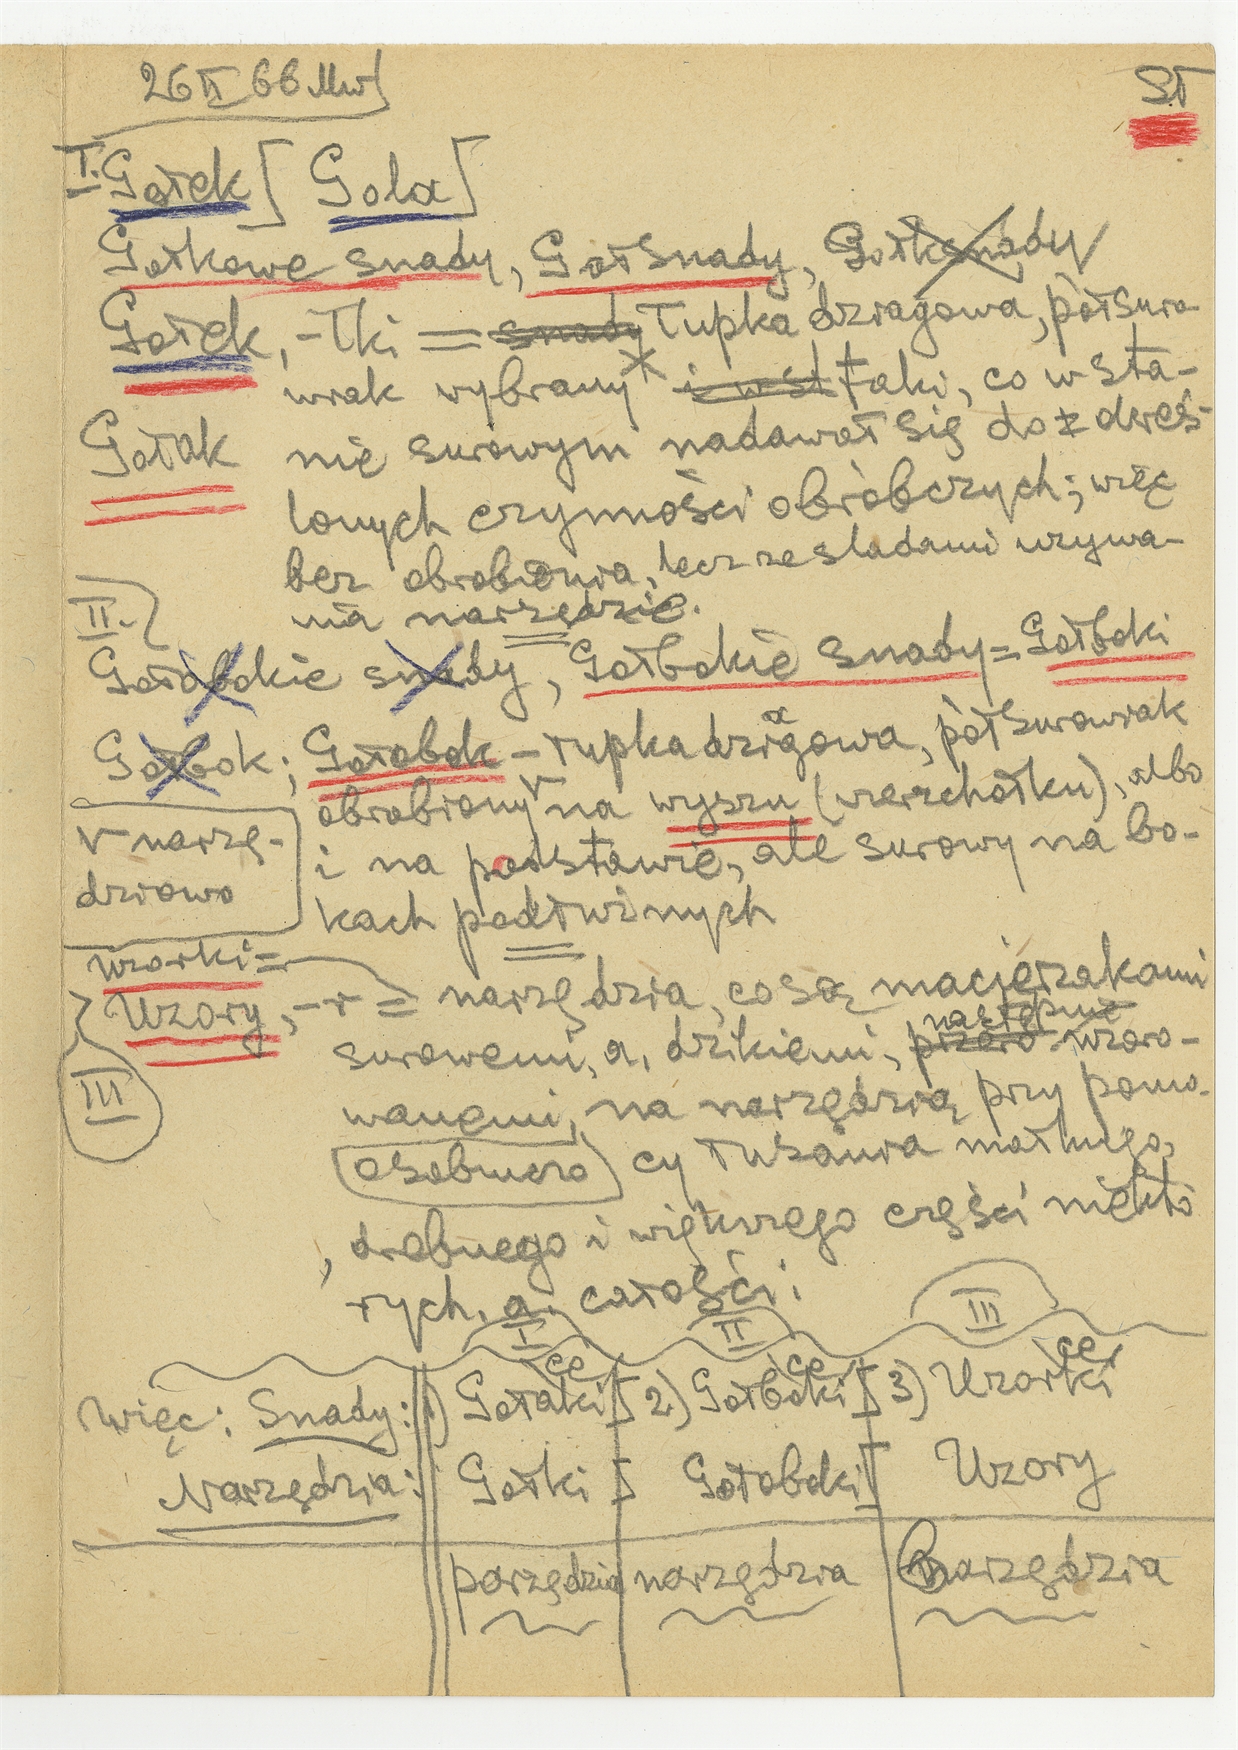 26 II 66 Mw
ST
I. Gołek [Gola]
Gołkowe snady, Gołsnady, Gołksnady
Gołek, -łki = snady łupka dziagowa, półsuro-
wiak wybrany i w st taki, co w sta-
Gołak nie surowym nadawał się do z okreś-
lonych czynności obróbczych; więc
bez obrobienia, lecz ze śladami używa-
nia narzędzie.
II.
Gołobokie snady, Gołbokie snady = Gołboki
Gołbok; Gołobok - łupka dziagowa, półsurowiak
obrobiony v na wyszu (wierzchołku), albo
v narzę-
dziowo
i na podstawie, ale surowy na bo-
kach podłużnych
Wzorki =
Uzory, -r = narzędzia, co są macierzakami
III
surowemi, a, dzikiemi, przero następnie wzoro-
wanemi, na narzędzia przy pomo-
(osobniczo) cy łusania małnego,
, drobnego i większego części niektó
rych, a, całości:
I II III
Więc: Snady: 1) Gołaki ce ] 2) Gołboki ce ] 3) Uzorki ce,
Narzędzia: Gołki ] Gołoboki ] Uzory
parzędzia narzędzia narzędzia